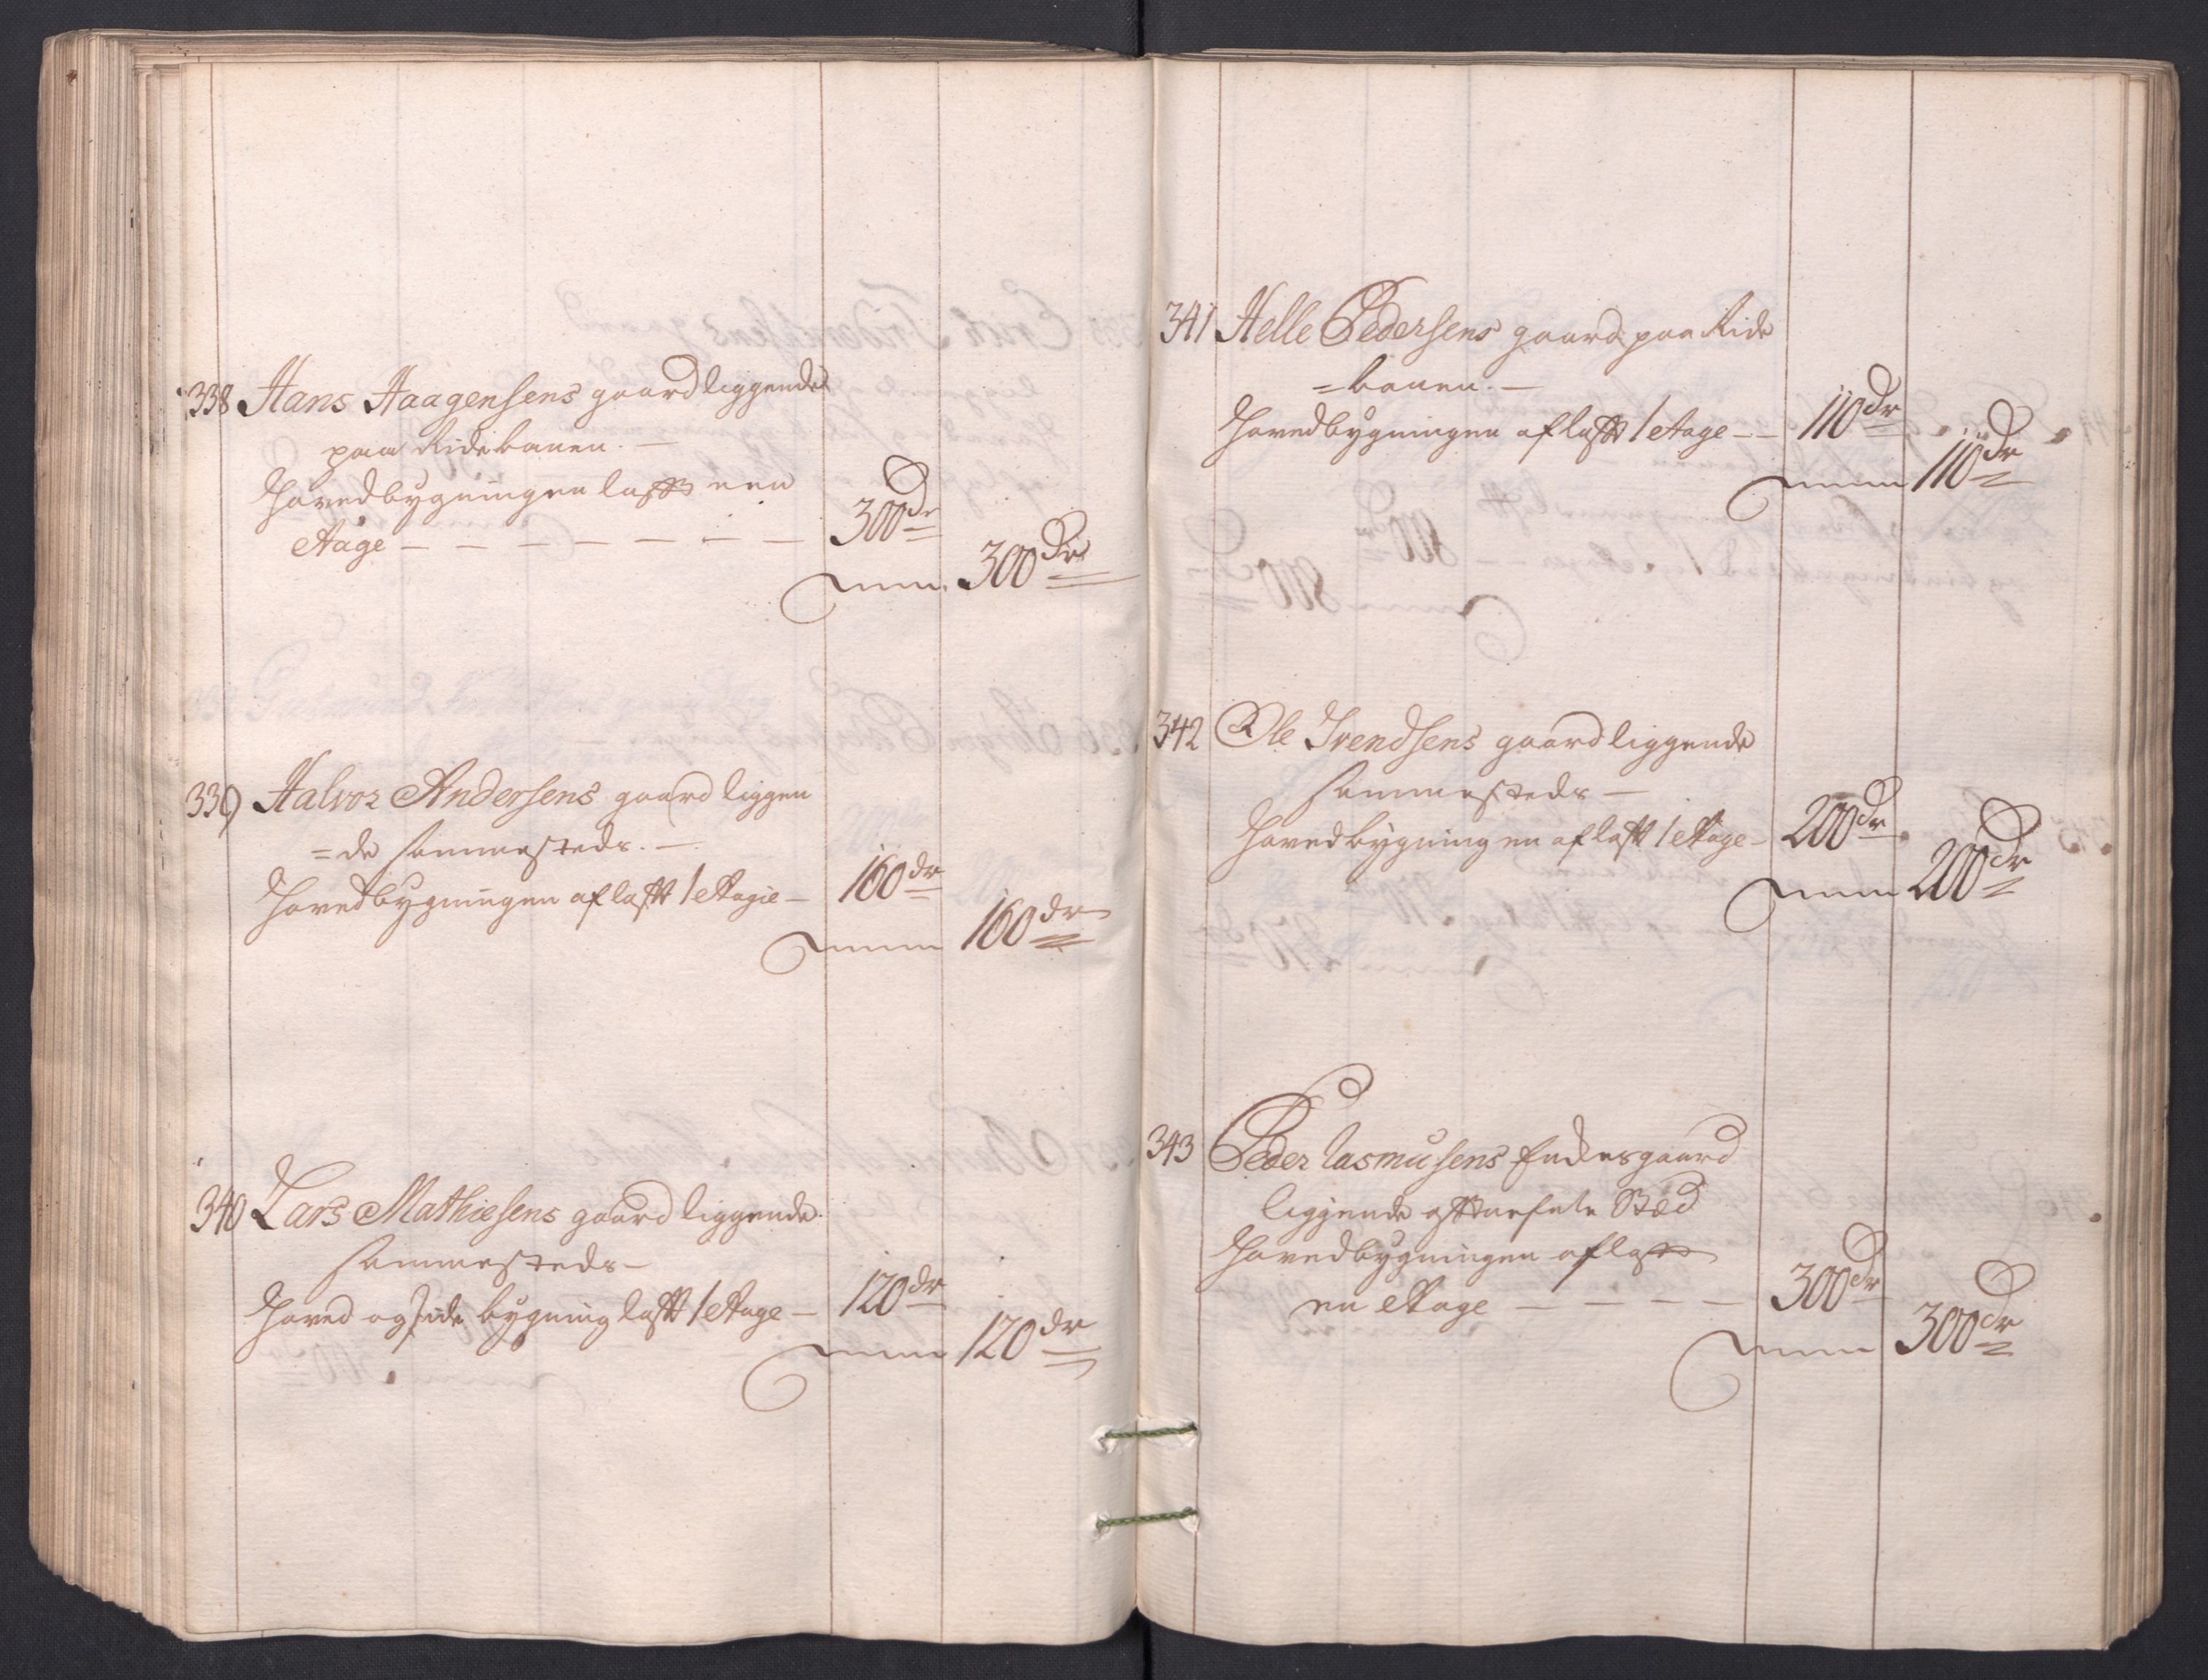 338 Hans Haagensens gaard liggende
paa Ridebanen. —
Hovedbygningen lafft een
Etage — — — — — — — 300 dr
300 dr
339 Halvor Andersens gaard liggen
=de sammesteds. —
Hovedbygningen af lafft 1 Etagie — 160 dr
160 dr
340 Lars Mathiesens gaard liggende
sammesteds —
Hoved og side bygning lafft 1 Etage — 120 dr
120 dr
341 Helle Pedersens gaard paa Ride
=banen. —
Hovedbygningen af lafft 1 Etage — — 110 dr
110 dr
342 Ole Svendsens gaard liggende
sammesteds —
Hovedbygningen af lafft 1 Etage — 200 dr
200 dr
343 Peder Rasmusens Enkes gaard
liggende Stæd
Hovedbygningen af lafft
en Etage — — — — 300 dr
300 dr